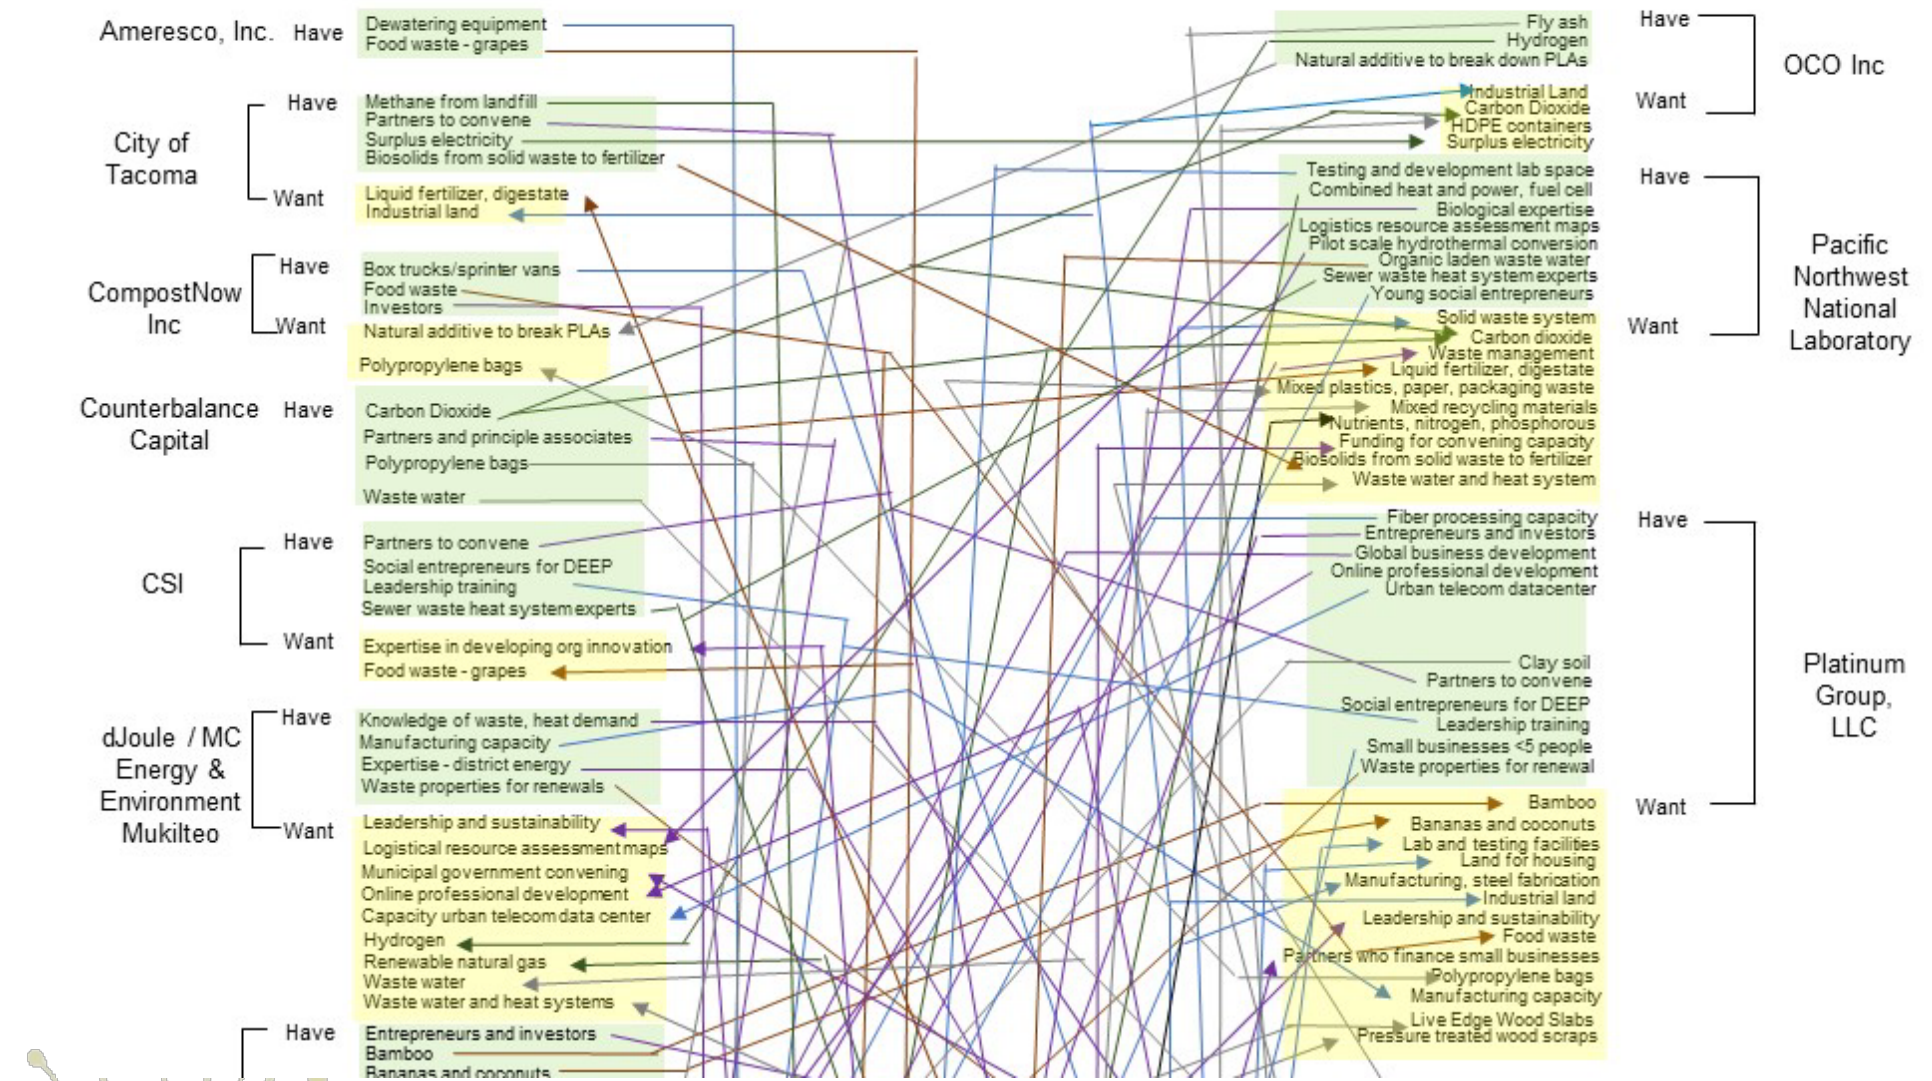 Ameresco, Inc.
Have
Dewatering equipment
Food waste - grapes
City of
Tacoma
Have
Methane from landfill
Partners to convene
Surplus electricity
Biosolids from solid waste to fertilizer
Want
Liquid fertilizer, digestate
Industrial land
CompostNow
Inc
Have
Box trucks/sprinter vans
Food waste
Investors
Want
Natural additive to break PLAs
Polypropylene bags
Counterbalance
Capital
Have
Carbon Dioxide
Partners and principle associates
Polypropylene bags
Waste water
CSI
Have
Partners to convene
Social entrepreneurs for DEEP
Leadership training
Sewer waste heat system experts
Want
Expertise in developing org innovation
Food waste - grapes
dJoule / MC
Energy &
Environment
Mukilteo
Have
Knowledge of waste, heat demand
Manufacturing capacity
Expertise - district energy
Waste properties for renewals
Want
Leadership and sustainability
Logistical resource assessment maps
Municipal government convening
Online professional development
Capacity urban telecom data center
Hydrogen
Renewable natural gas
Waste water
Waste water and heat systems
Have
Entrepreneurs and investors
Bamboo
Bananas and coconuts
Fly ash
Hydrogen
Natural additive to break down PLAs
Have
OCO Inc
Industrial Land
Carbon Dioxide
HDPE containers
Surplus electricity
Want
Testing and development lab space
Combined heat and power, fuel cell
Biological expertise
Logistics resource assessment maps
Pilot scale hydrothermal conversion
Organic laden waste water
Sewer waste heat system experts
Young social entrepreneurs
Have
Pacific
Northwest
National
Laboratory
Solid waste system
Carbon dioxide
Waste management
Liquid fertilizer, digestate
Mixed plastics, paper, packaging waste
Mixed recycling materials
Nutrients, nitrogen, phosphorous
Funding for convening capacity
Biosolids from solid waste to fertilizer
Waste water and heat system
Want
Fiber processing capacity
Entrepreneurs and investors
Global business development
Online professional development
Urban telecom datacenter
Clay soil
Partners to convene
Social entrepreneurs for DEEP
Leadership training
Small businesses <5 people
Waste properties for renewal
Have
Platinum
Group,
LLC
Bamboo
Bananas and coconuts
Lab and testing facilities
Land for housing
Manufacturing, steel fabrication
Industrial land
Leadership and sustainability
Food waste
Partners who finance small businesses
Polypropylene bags
Manufacturing capacity
Live Edge Wood Slabs
Pressure treated wood scraps
Want